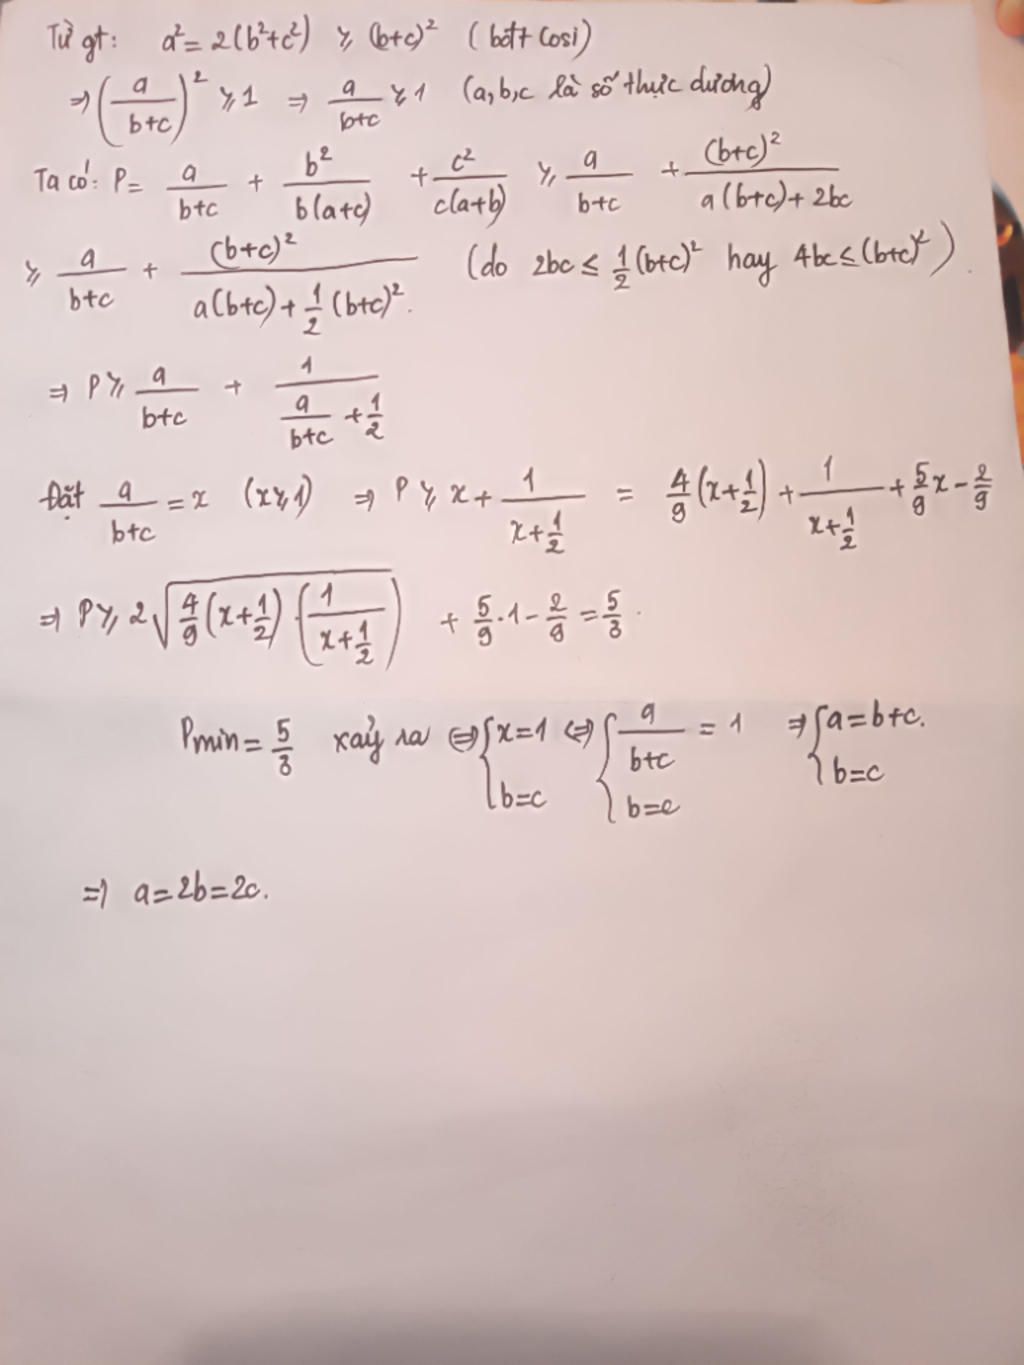 Từ gt: a² = 2(b²+c²) ≥ (b+c)² (bđt cosi)
⇒ (a/(b+c))² ≥ 1 ⇒ a/(b+c) ≥ 1 (a,b,c là số thực dương)
Ta có: P = a/(b+c) + b²/(b(a+c)) + c²/(c(a+b)) ≥ a/(b+c) + (b+c)²/(a(b+c)+2bc)
≥ a/(b+c) + (b+c)²/(a(b+c)+½(b+c)²). (do 2bc ≤ ½(b+c)² hay 4bc ≤ (b+c)²).
⇒ P ≥ a/(b+c) + 1/(a/(b+c) + ½)
Đặt a/(b+c) = x (x ≥ 1) ⇒ P ≥ x + 1/(x+½) = 4/9(x+½) + 1/(x+½) + 5/9x - 2/9
⇒ P ≥ 2√(4/9(x+½)·(1/(x+½))) + 5/9·1 - 2/9 = 5/3.
Pmin = 5/3 xảy ra ⇔ {x=1, b=c ⇔ {a/(b+c) = 1, b=c ⇒ {a=b+c., b=c
⇒ a=2b=2c.